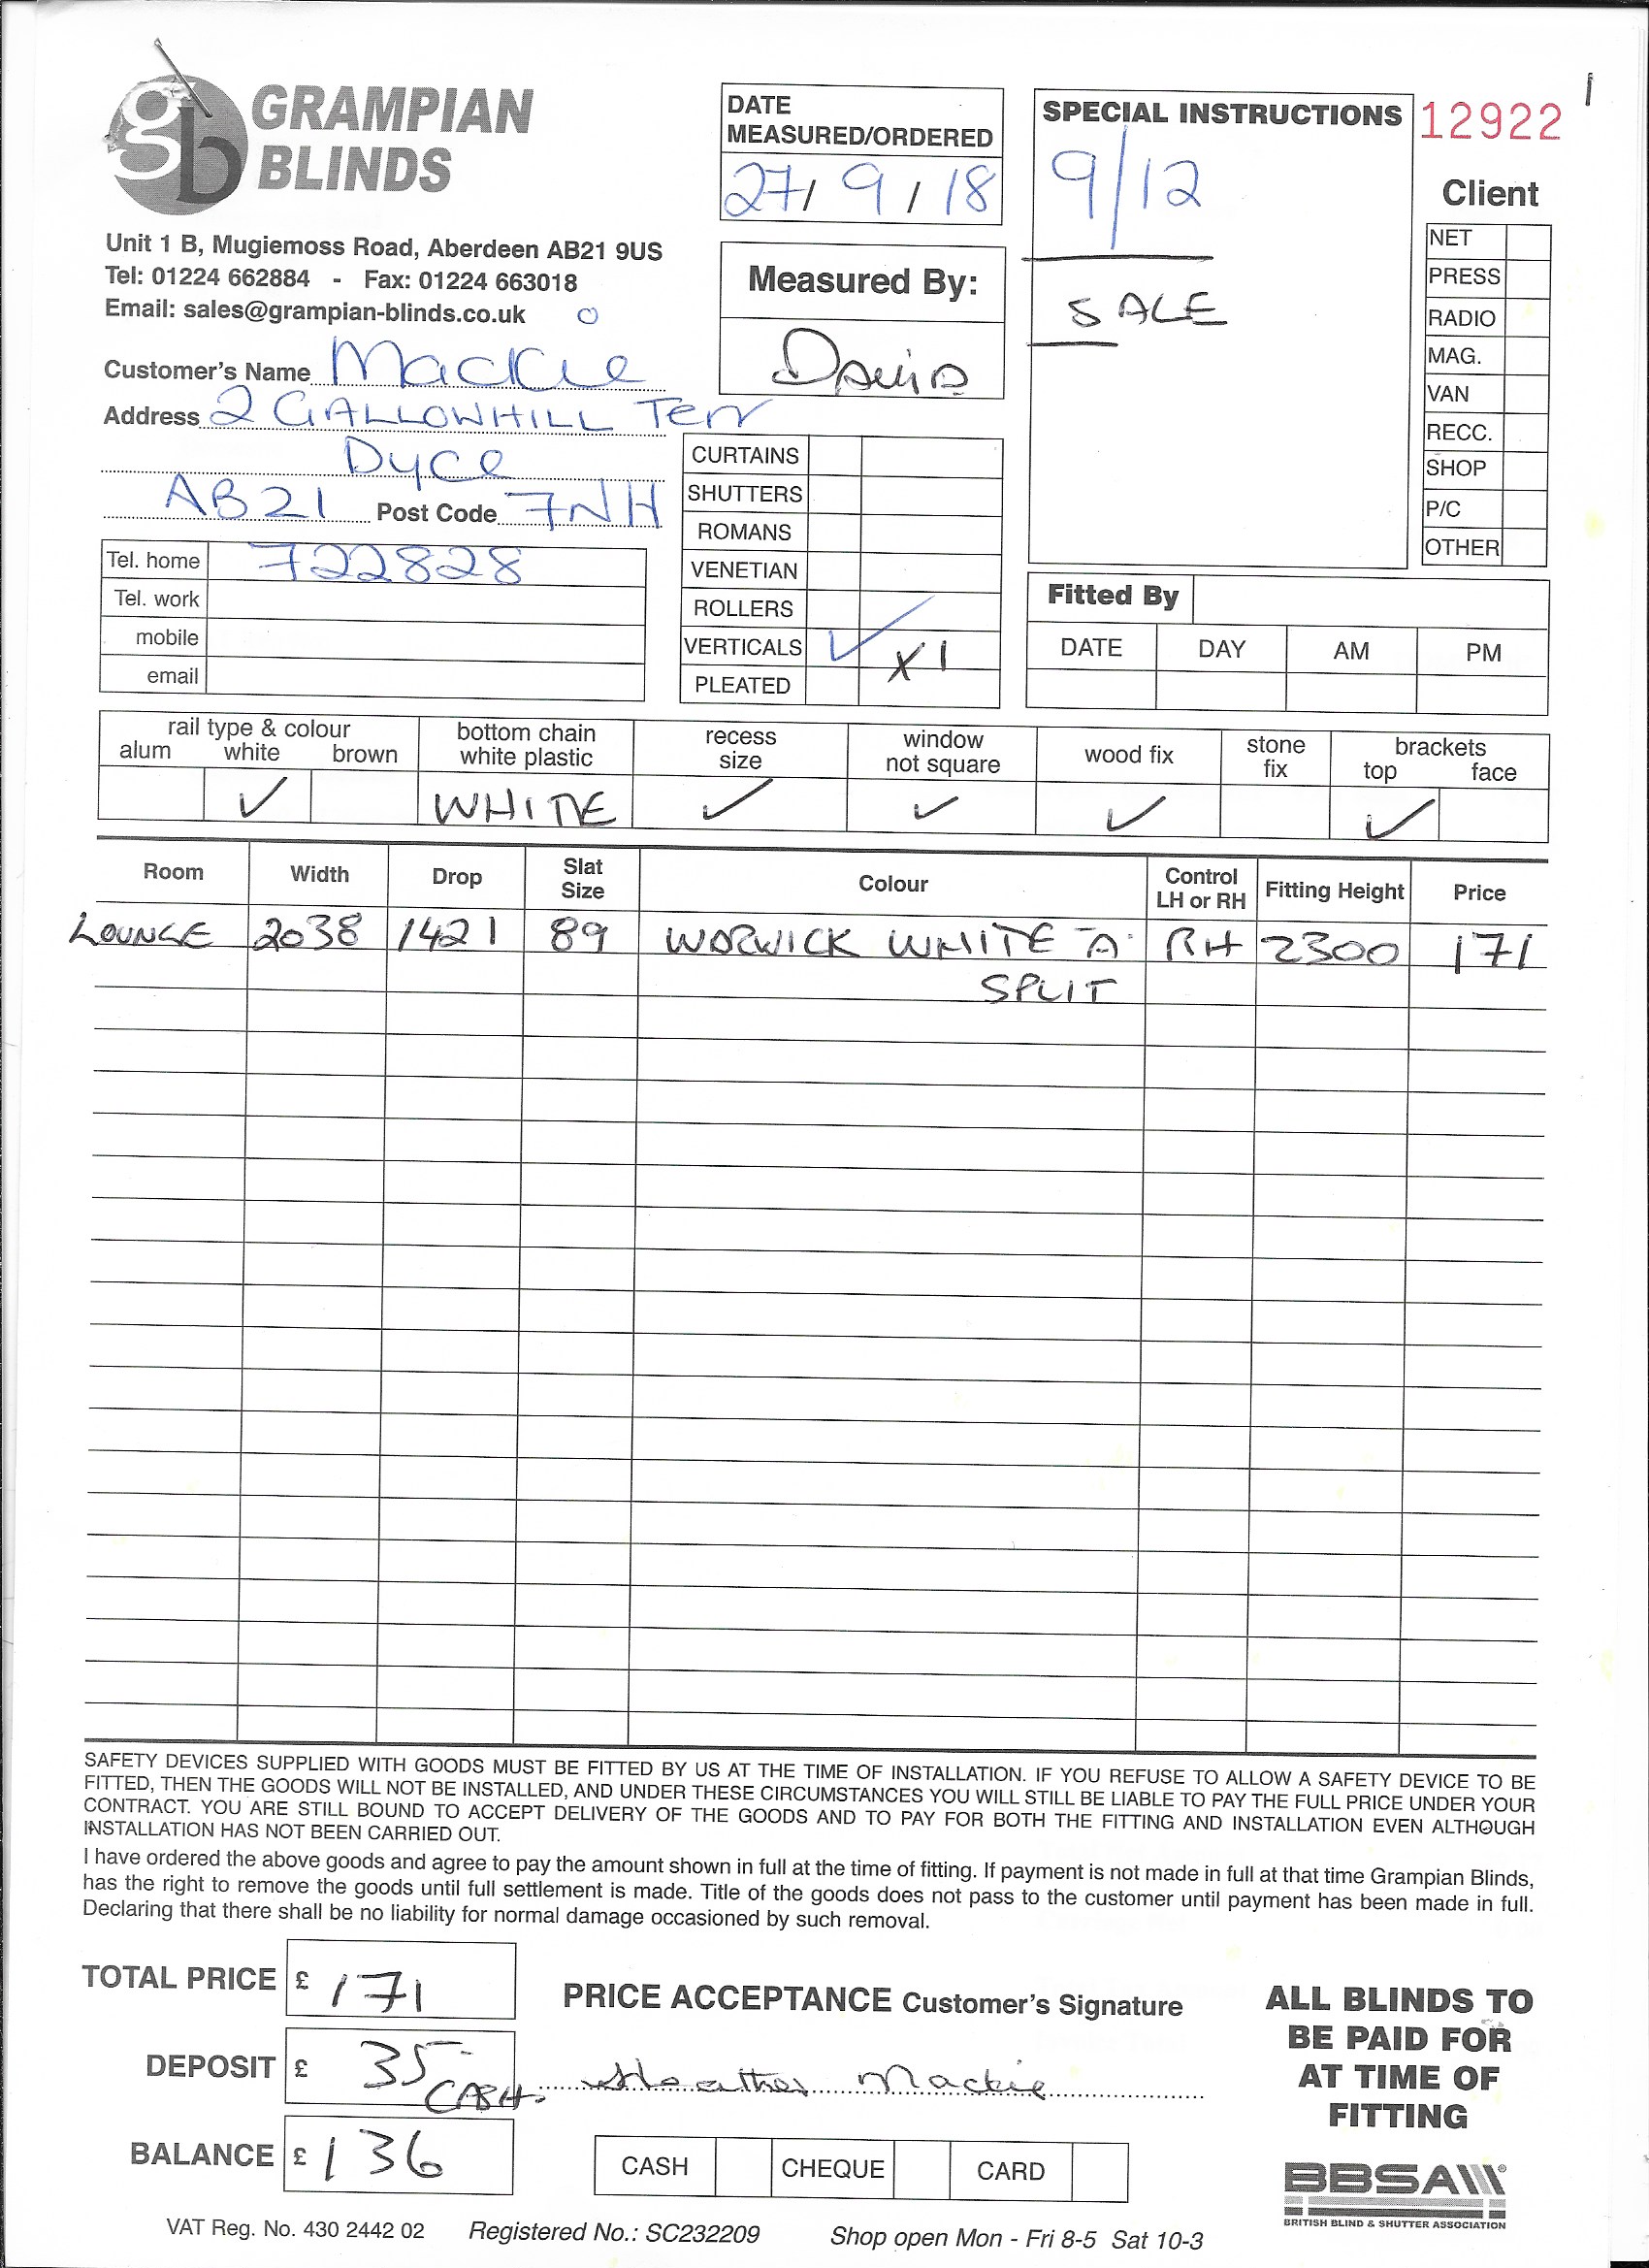 gb GRAMPIAN
BLINDS
Unit 1 B, Mugiemoss Road, Aberdeen AB21 9US
Tel: 01224 662884 - Fax: 01224 663018
Email: sales@grampian-blinds.co.uk
Customer's Name Mackie
Address 2 GALLOWHILL Terr
Dyce
AB21 Post Code 7NH
Tel. home 722828
Tel. work
mobile
email
DATE
MEASURED/ORDERED
27/9/18
Measured By:
DAVID
CURTAINS
SHUTTERS
ROMANS
VENETIAN
ROLLERS
VERTICALS ✓ X1
PLEATED
SPECIAL INSTRUCTIONS
9/12
SALE
12922
Client
NET
PRESS
RADIO
MAG.
VAN
RECC.
SHOP
P/C
OTHER
Fitted By
DATE DAY AM PM
rail type & colour bottom chain recess window wood fix stone brackets
alum white brown white plastic size not square fix top face
✓ WHITE ✓ ✓ ✓ ✓
Room Width Drop Slat Size Colour Control LH or RH Fitting Height Price
LOUNGE 2038 1421 89 WORWICK WHITE A RH 2300 171
SPLIT
SAFETY DEVICES SUPPLIED WITH GOODS MUST BE FITTED BY US AT THE TIME OF INSTALLATION. IF YOU REFUSE TO ALLOW A SAFETY DEVICE TO BE
FITTED, THEN THE GOODS WILL NOT BE INSTALLED, AND UNDER THESE CIRCUMSTANCES YOU WILL STILL BE LIABLE TO PAY THE FULL PRICE UNDER YOUR
CONTRACT. YOU ARE STILL BOUND TO ACCEPT DELIVERY OF THE GOODS AND TO PAY FOR BOTH THE FITTING AND INSTALLATION EVEN ALTHOUGH
INSTALLATION HAS NOT BEEN CARRIED OUT.
I have ordered the above goods and agree to pay the amount shown in full at the time of fitting. If payment is not made in full at that time Grampian Blinds,
has the right to remove the goods until full settlement is made. Title of the goods does not pass to the customer until payment has been made in full.
Declaring that there shall be no liability for normal damage occasioned by such removal.
TOTAL PRICE £ 171
DEPOSIT £ 35 CASH.
BALANCE £ 136
PRICE ACCEPTANCE Customer's Signature
Heather Mackie
CASH CHEQUE CARD
ALL BLINDS TO
BE PAID FOR
AT TIME OF
FITTING
BBSA
BRITISH BLIND & SHUTTER ASSOCIATION
VAT Reg. No. 430 2442 02 Registered No.: SC232209 Shop open Mon - Fri 8-5 Sat 10-3